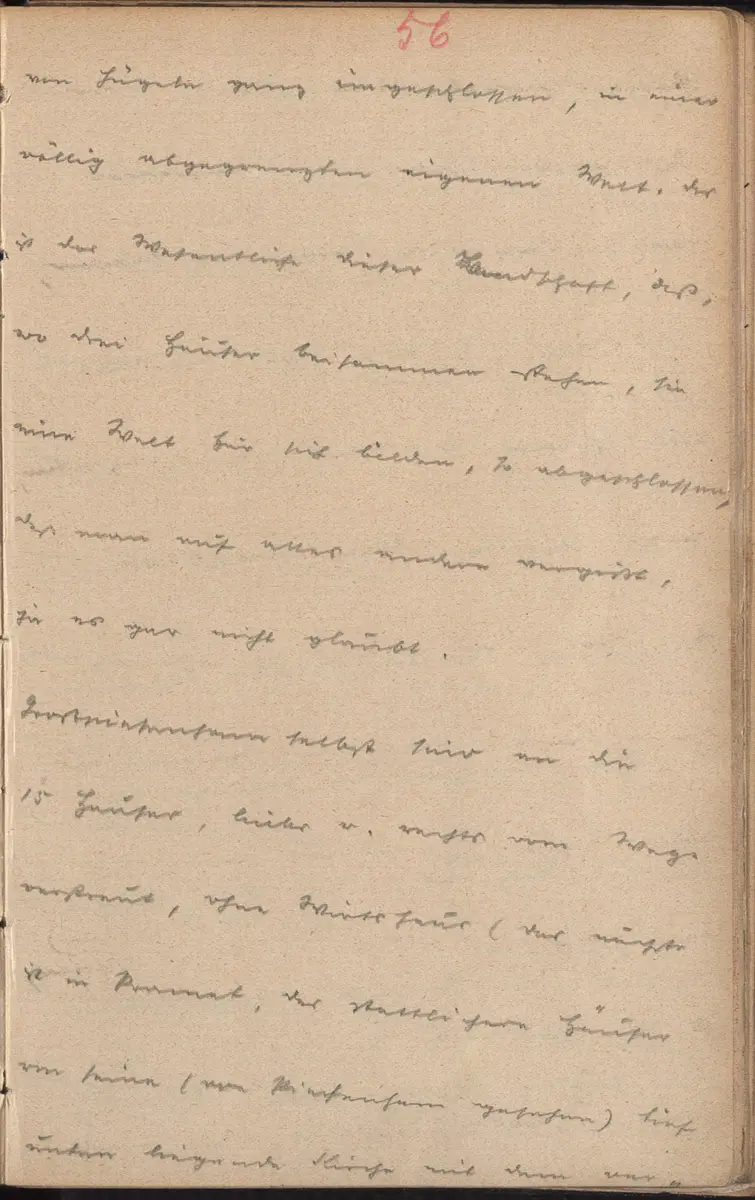 56
von Hügeln ganz eingeschlossen, in einer
völlig abgegrenzten eigenen Welt. Das
ist das Wesentliche dieser Landschaft, daß,
wo drei Häuser beisammen stehen, sie
eine Welt für sich bilden, so abgeschlossen,
daß man auf alles andere vergißt,
ja es gar nicht glaubt.
Großpiesenham selbst sind an die
15 Häuser, links u. rechts vom Wege
verstreut, ohne Wirtshaus (das nächste
ist in Pramet, das stattlichere Häuser
um seine (von Piesenham gesehen) tief
unten liegende Kirche mit dem ver„